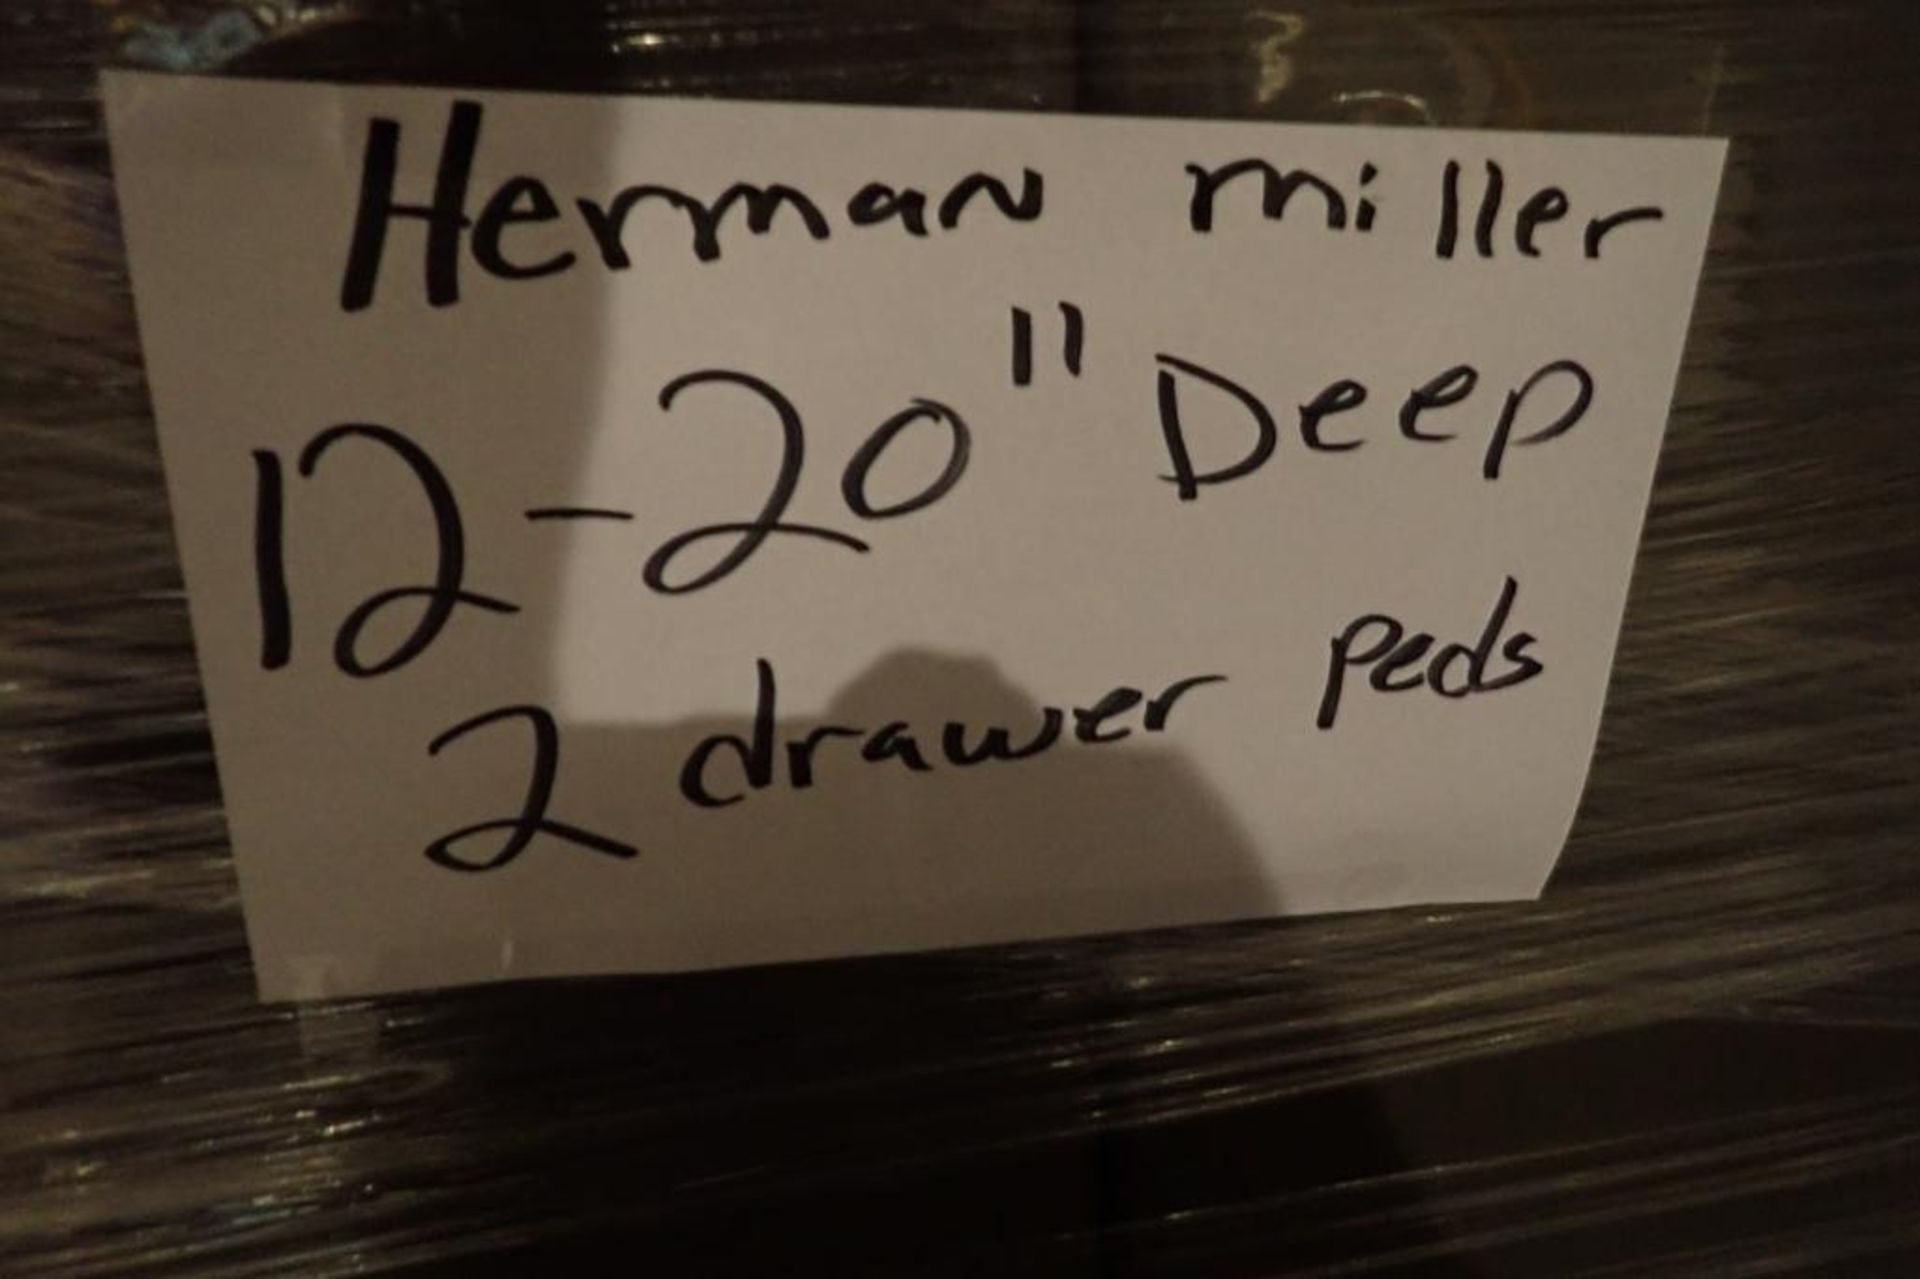 Herman miller
12-20" Deep
2 drawer peds